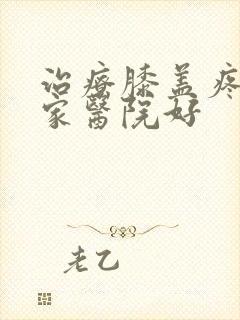 治疗膝盖疼
家醫院好
老乙